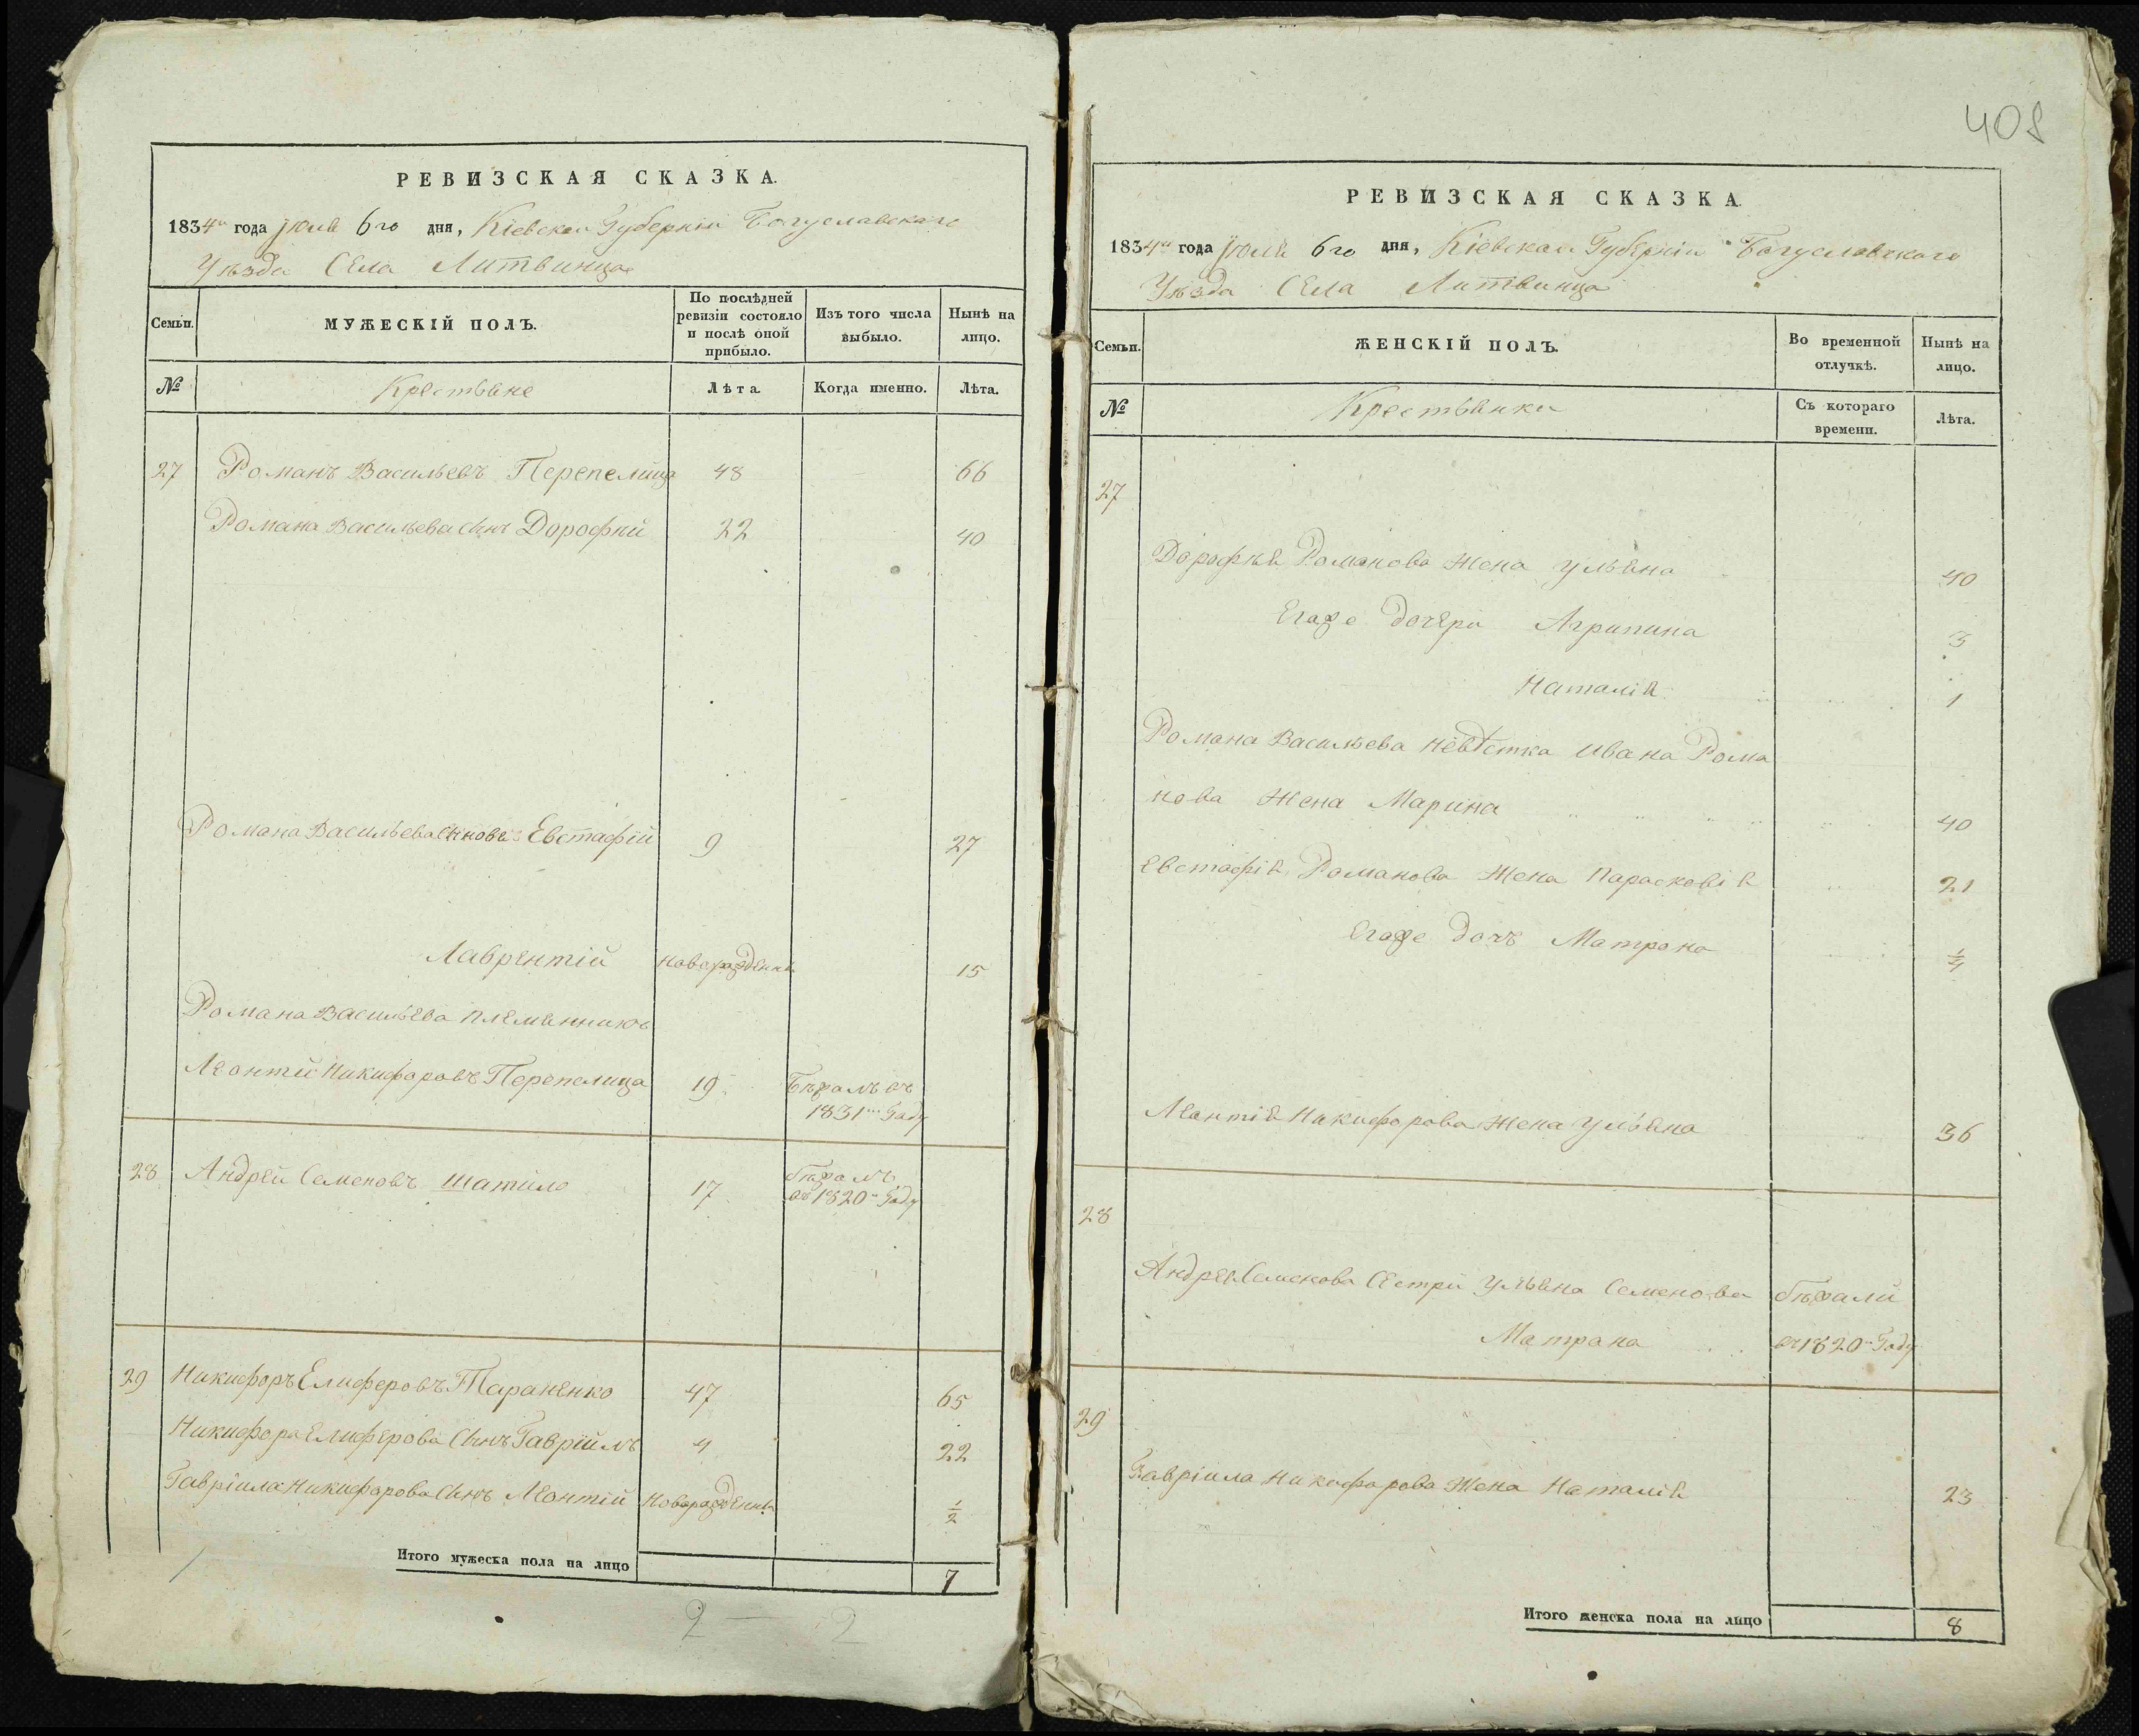 408
РЕВИЗСКАЯ СКАЗКА.
1834го года Июля 6го дня, Кіевской Губерніи Богуславскаго
Уѣзда Села Литвинца
Семьи.
МУЖЕСКІЙ ПОЛЪ.
По послѣдней ревизіи состояло и послѣ оной прибыло.
Изъ того числа выбыло.
Нынѣ на лицо.
№
Крестьяне
Лѣта
Когда именно.
Лѣта.
27 Романъ Васильевъ Перепелица 48 66
Романа Васильева Сынъ Дорофѣй 22 40
Романа Васильева Сыновья Евстафій 9 27
Лаврентій новорожденъ 15
Романа Васильева племянникъ
Леонтій Никифоровъ Перепелица 19 Бѣжалъ въ
1831м Году
28 Андрей Семеновъ Шатило 17 бѣжалъ
въ 1820м Году
29 Никифоръ Елиферовъ Тараненко 47 65
Никифора Елиферова Сынъ Гавріилъ 4 22
Гавріила Никифорова Сынъ Леонтій новорожденъ 1/2
Итого мужеска пола на лицо 7
2 — 2
РЕВИЗСКАЯ СКАЗКА.
1834го года Июля 6го дня, Кіевской Губерніи Богуславскаго
Уѣзда Села Литвинца
Семьи.
ЖЕНСКІЙ ПОЛЪ.
Во временной отлучкѣ.
Нынѣ на лицо.
№
Крестьянки
Съ котораго времени.
Лѣта.
27
Дорофѣя Романова Жена Ульяна 40
Егоже дочери Агрипина 3
Наталія 1
Романа Васильева невѣстка Ивана Рома
нова Жена Марина 40
Евстафія Романова Жена Парасковія 21
Егоже дочь Матрона 1/4
Леонтія Никифорова Жена Ульяна 36
28
Андрея Семенова Сестри Ульяна Семенова бѣжали
Матрона въ 1820м Году
29
Гавріила Никифорова Жена Наталія 23
Итого женска пола на лицо 8